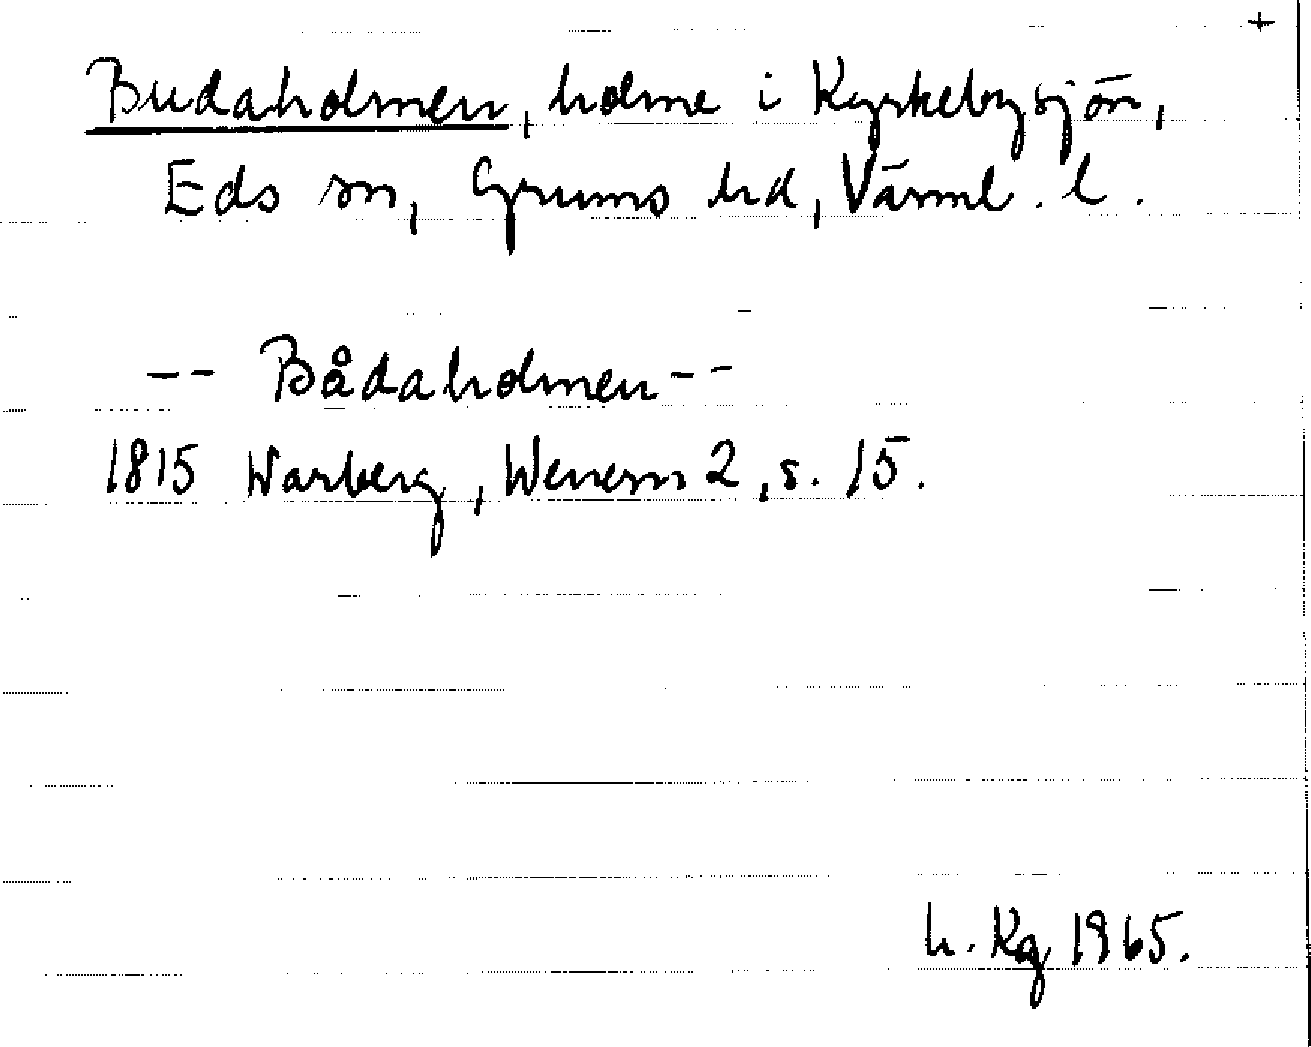 +
Budaholmen, holme i Kyrkebysjön,
Eds sn, Grums hd, Värml. l.
-- Bådaholmen --
1815 Warberg, Wenern 2, s. 15.
h. Kg 1965.